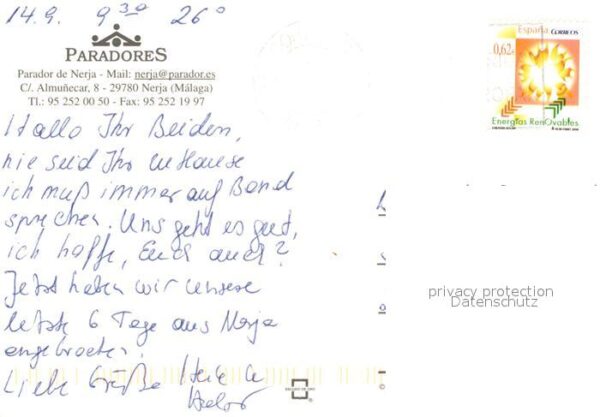 14.9. 9³⁰ 26°
PARADORES
Parador de Nerja - Mail: nerja@parador.es
C/. Almuñecar, 8 - 29780 Nerja (Málaga)
Tl.: 95 252 00 50 - Fax: 95 252 19 97
Hallo Ihr Beiden,
nie seid Ihr zuHause
ich muß immer auf Band
sprechen. Uns geht es gut,
ich hoffe, Euch auch?
Jetzt haben wir unsere
letzte 6 Tage aus Nerja
angebrochen.
Liebe Grüße
España CORREOS
0,62€
Energías RenOvables
privacy protection
Datenschutz